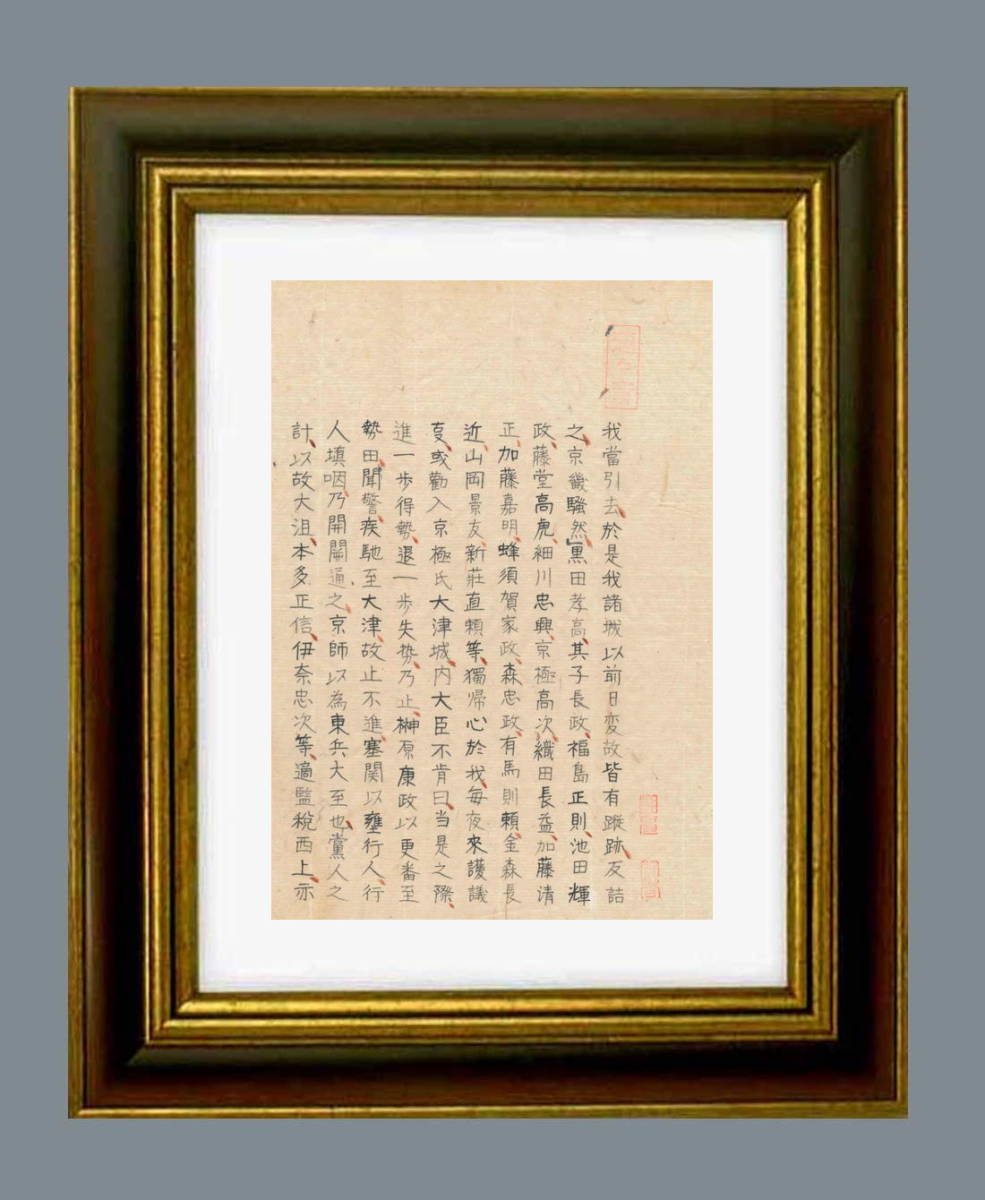 我當引去於是我諸城以前日変故皆有蹤跡反詰
之京畿騒然黒田孝高其子長政福島正則池田輝
政藤堂高虎細川忠興京極高次織田長益加藤清
正加藤嘉明蜂須賀家政森忠政有馬則頼金森長
近山岡景友新莊直頼等獨帰心於我毎夜來護議
変或勸入京極氏大津城内大臣不肯曰当是之際
進一歩得勢退一歩失勢乃止榊原康政以更番至
勢田聞警疾馳至大津故止不進塞関以壅行人行
人填咽乃開関逼之京師以為東兵大至也黨人之
計以故大沮本多正信伊奈忠次等適監税西上亦